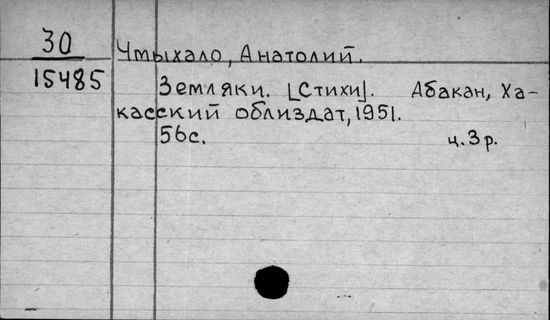 30
15485
Чтыхало, Анатолий.
Земляки. [Стихи]. Абакан, Ха-
касский облиздат, 1951.
56с.
ц. 3 р.